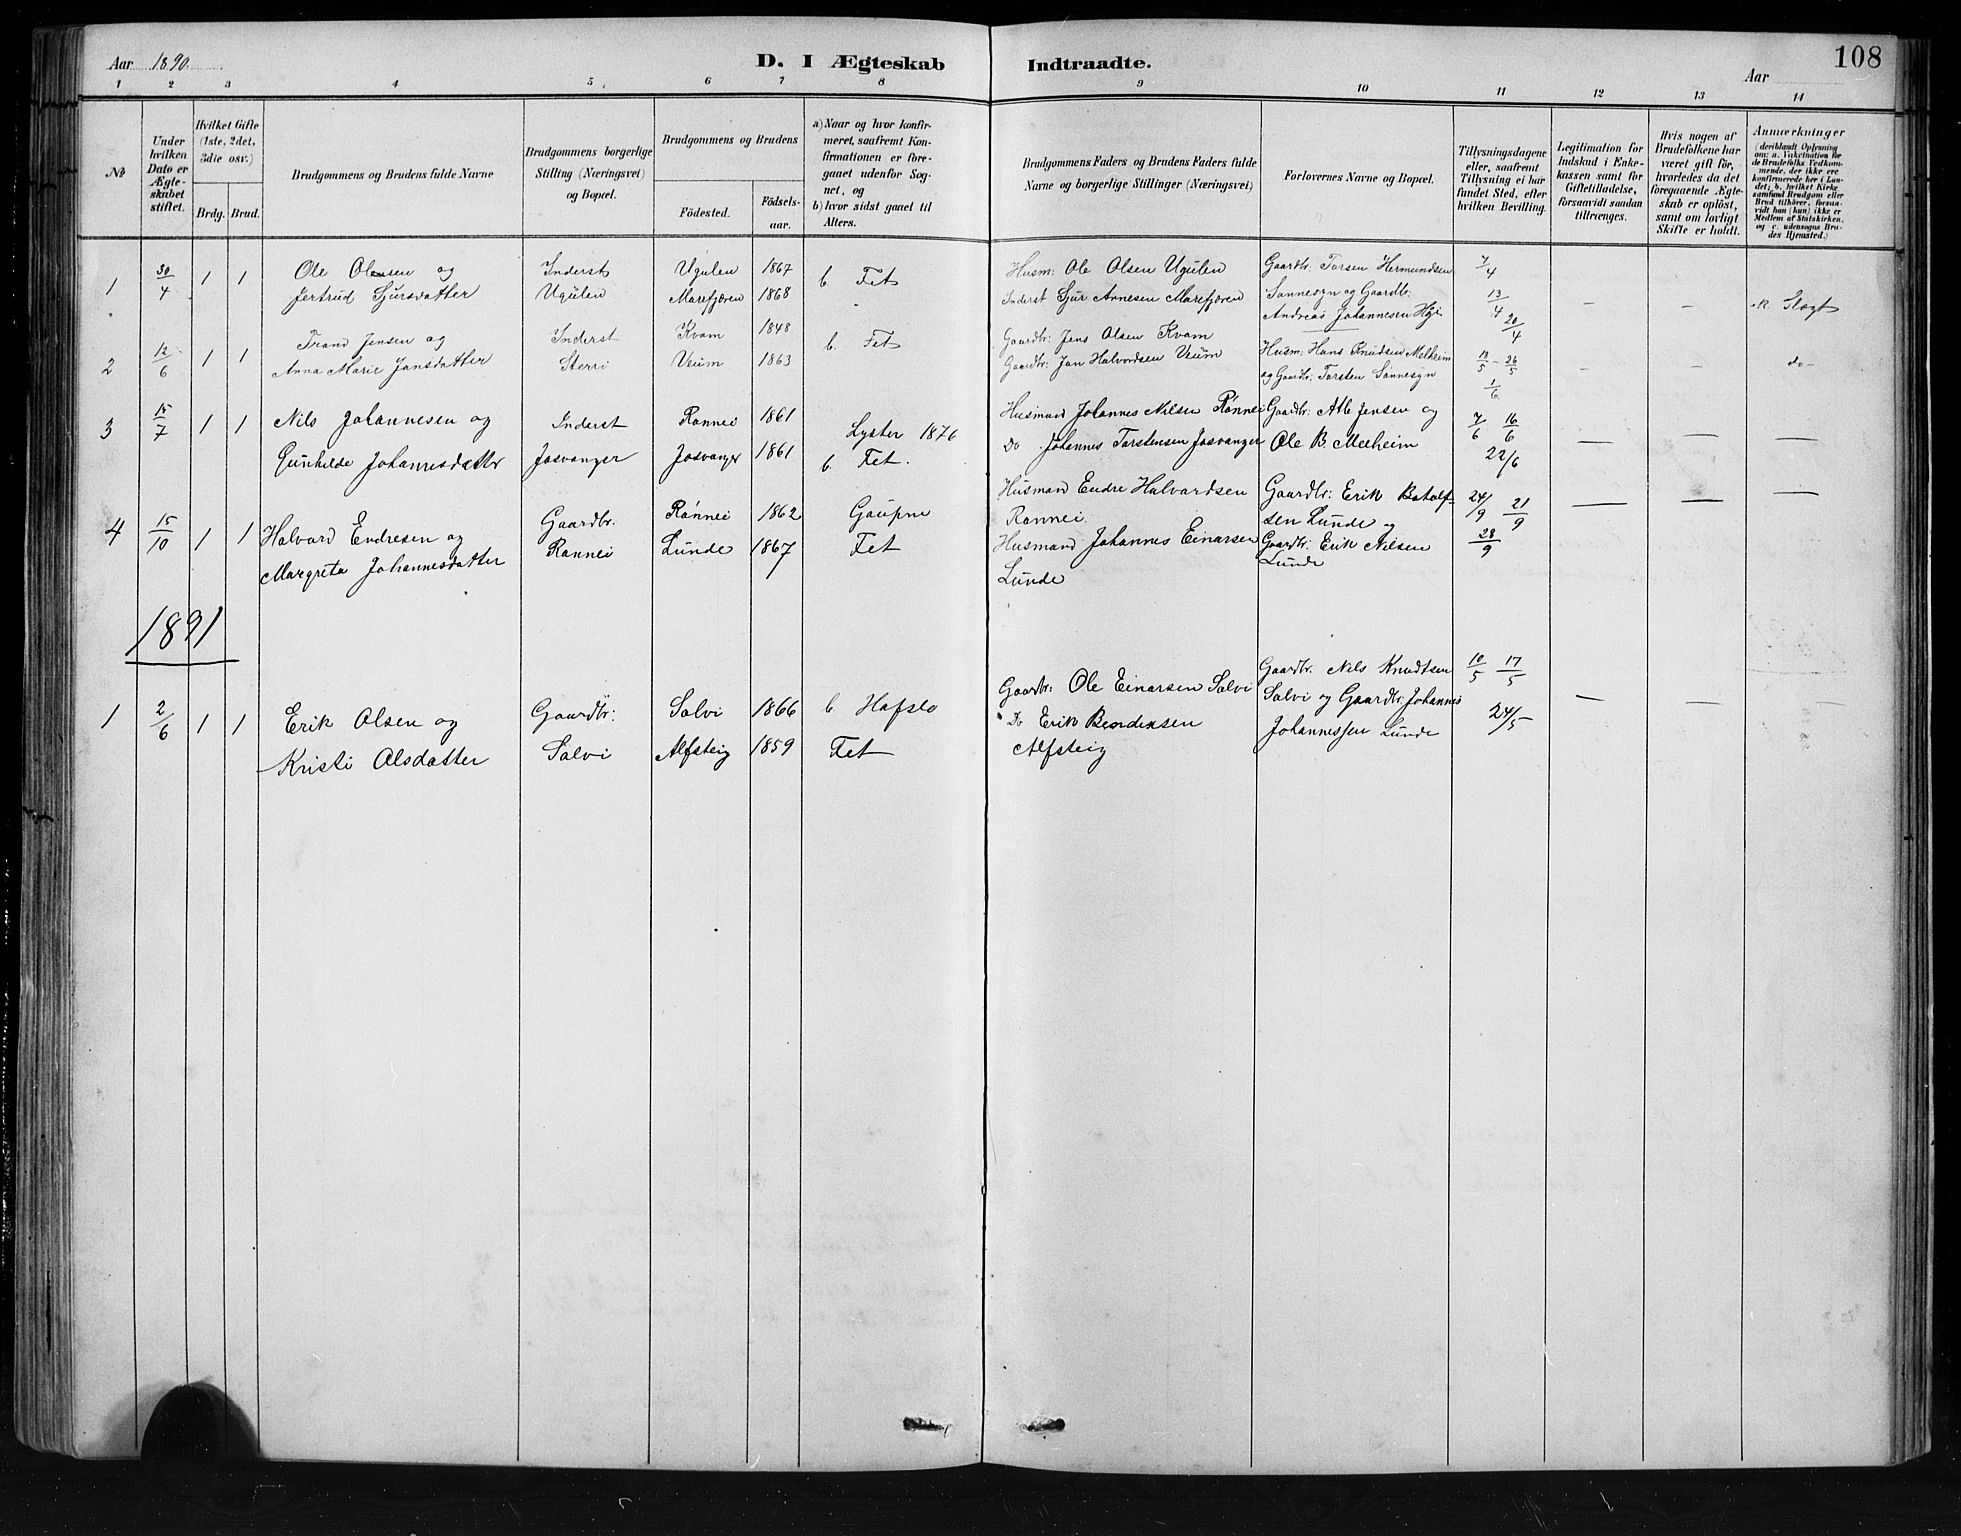 Aar 1890.
D. I Ægteskab Indtraadte.
Aar 108
1 2 3 4 5 6 7 8 9 10 11 12 13 14
No
Under hvilken Dato er Ægteskabet stiftet.
Hvilket Gifte (1ste, 2det, 3die osv.)
Brdg. Brud.
Brudgommens og Brudens fulde Navne
Brudgommens borgerlige Stilling (Næringsvei) og Bopæl.
Brudgommens og Brudens
Födested. Födselsaar.
a) Naar og hvor konfirmeret, saafremt Konfirmationen er foregaaet udenfor Sognet, og
b) hvor sidst gaaet til Alters.
Brudgommens Faders og Brudens Faders fulde Navne og borgerlige Stillinger (Næringsvei)
Forlovernes Navne og Bopæl.
Tillysningsdagene eller, saafremt Tillysning ei har fundet Sted, efter hvilken Bevilling.
Legitimation for Indskud i Enkekassen samt for Giftetilladelse, forsaavidt saadan tiltrænges.
Hvis nogen af Brudefolkene har været gift för, hvorledes da det foregaaende Ægteskab er oplöst, samt om lovligt Skifte er holdt.
Anmærkninger (deriblandt Oplysning om: a. Vakcination for de Brudefolks Vedkommende, der ikke ere konfirmerede her i Landet; b. hvilket Kirkesamfund Brudgom eller Brud tilhörer, forsaavidt han (hun) ikke er Medlem af Statskirken, og c. udensogns Brudes Hjemsted.)
1 30/4 1 1 Ole Olensen og Inderst Ugulen 1867 b Fet Husm: Ole Olsen Ugulen Gaardbr: Torsen Hermundsen 7/4
Jertrud Sjursdatter Ugulen Marefjæren 1868 Inderst Sjur Arnesen Marefjæren Sønnesyn og Gaardbr: 13/4 – – Slægt
Andreas Johannesen 20/4
2 12/6 1 1 Trond Jensen og Inderst Kvam 1848 b. Fet Gaardbr: Jens Olsen Kvam Husm: Hans Knudsen Melheim 18/5 – 26/5 – – do –
Anna Marie Jansdatter Sterri Veum 1863 Gaardbr: Jan Halvordsen Veum og Gaardbr: Torsten Sønnesyn 1/6
3 15/7 1 1 Nils Johannesen og Inderst Rønnei 1861 Lyster 1876 Husmand Johannes Nilsen Rønnei Gaardbr: Atle Jensen og 7/6 16/6 — — —
Gunhilde Johannesdatter Josvanger Josvanger 1861 b. Fet. Do Johannes Torstensen Josvanger Ole B. Melheim 22/6
4 15/10 1 1 Halvard Endresen og Gaardbr: Rønnei 1862 Gaupne Husmand Endre Halvardsen Gaardbr: Erik Botolf- 24/9 21/9 — — —
Rønnei. sen Lunde og
Margreta Johannesdatter Rønnei Lunde 1867 Fet Husmand Johannes Einarsen Gaardbr: Erik Nilsen 28/9
Lunde Lunde
1891
1 2/6 1 1 Erik Olsen og Gaardbr: Solvi 1866 b. Hafslo Gaardbr: Ole Einarsen Solvi Gaardbr. Nils Knudtsen 10/5 17/5 — — —
Solvi og Gaardbr: Johannes
Kristi Olsdatter Solvi Alfsteig 1859 Fet " Do Erik Bendiksen Johannessen Lunde 24/5
Alfsteig